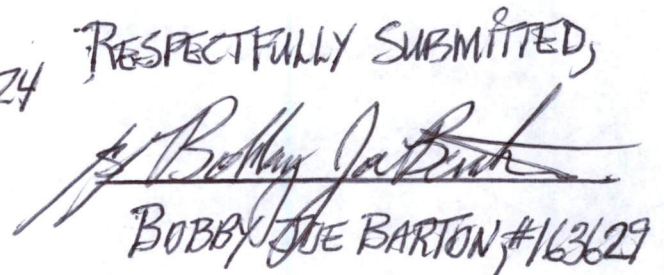 RESPECTFULLY SUBMITTED,
24
/s/ Bobby Joe Barton
BOBBY JOE BARTON, #163629